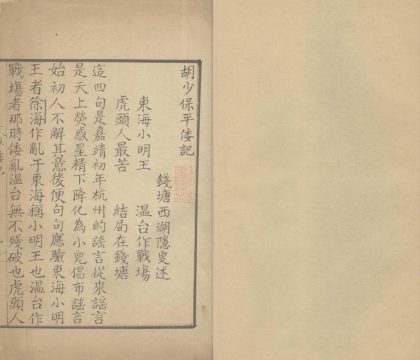 胡少保平倭記
錢塘西湖隱叟述
東海小明王　溫台作戰場
虎頭人最苦　結局在錢塘
這四句是嘉靖初年杭州的謠言從來謠言
是天上熒惑星精下降化為小兒倡布謠言
始初人不解其意後便句句應驗東海小明
王者徐海作亂于東海稱小明王也溫台作
戰場者那時倭亂溫台無不殘破也虎頭人